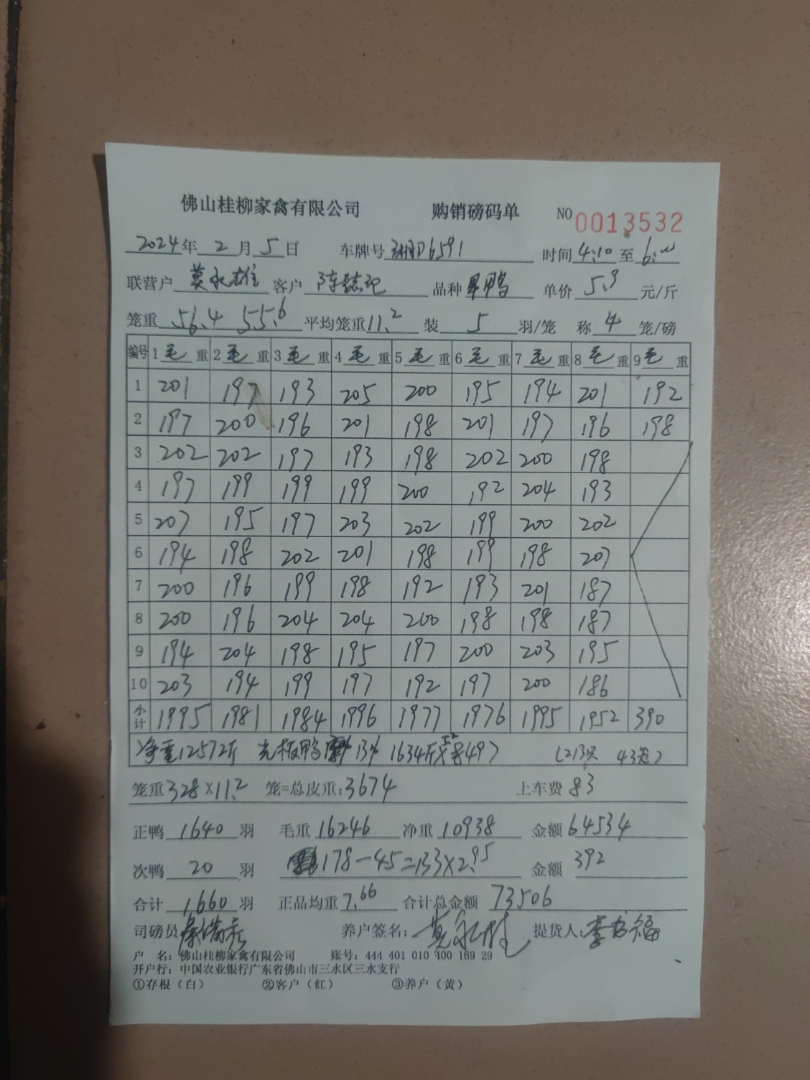 佛山桂柳家禽有限公司 购销磅码单 NO 0013532
2024年 2月 5日 车牌号 湘D6591 时间 4:10 至 6:00
联营户 莫永雄 客户 陈 记 品种 旱鸭 单价 5.9 元/斤
笼重 56.4 55.6 平均笼重 11.2 装 5 羽/笼 称 4 笼/磅
编号 1 毛 重 2 毛 重 3 毛 重 4 毛 重 5 毛 重 6 毛 重 7 毛 重 8 毛 重 9 毛 重
1 201 197 193 205 200 195 194 201 192
2 197 200 196 201 198 201 197 196 198
3 202 202 197 193 198 202 200 198
4 197 199 199 199 200 192 204 193
5 207 195 197 203 202 199 200 202
6 194 198 202 201 198 199 198 207
7 200 196 199 198 192 193 201 187
8 200 196 204 204 200 198 198 187
9 194 204 198 195 197 200 203 195
10 203 194 199 197 192 197 200 186
小计 1995 1981 1984 1996 1977 1976 1995 1952 390
净重12572斤 光板鸭 13% 1634斤 (213只 43笼)
笼重 328×11.2 笼=总皮重: 3674 上车费 83
正鸭 1640 羽 毛重 16246 净重 10938 金额 64534
次鸭 20 羽 178-45=133×2.95 金额 392
合计 1660 羽 正品均重 7.66 合计总金额 73506
司磅员 养户签名: 莫永雄 提货人: 李 福
户 名: 佛山桂柳家禽有限公司 账号: 444 401 010 400 169 29
开户行: 中国农业银行广东省佛山市三水区三水支行
①存根（白） ②客户（红） ③养户（黄）